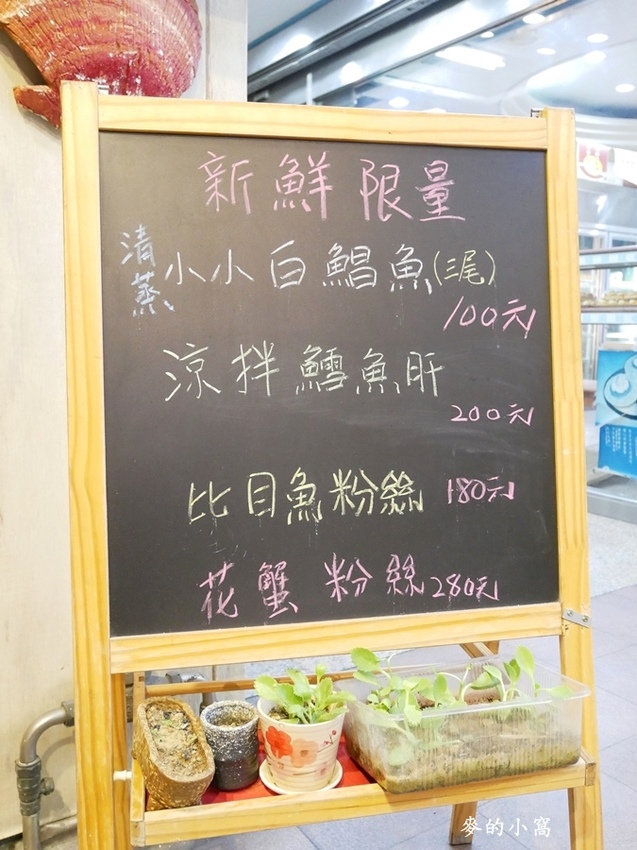 新鮮限量
清蒸小小白鯧魚(三尾)
100元
涼拌鱈魚肝
200元
比目魚粉絲 180元
花蟹粉絲 280元
麥的小窩